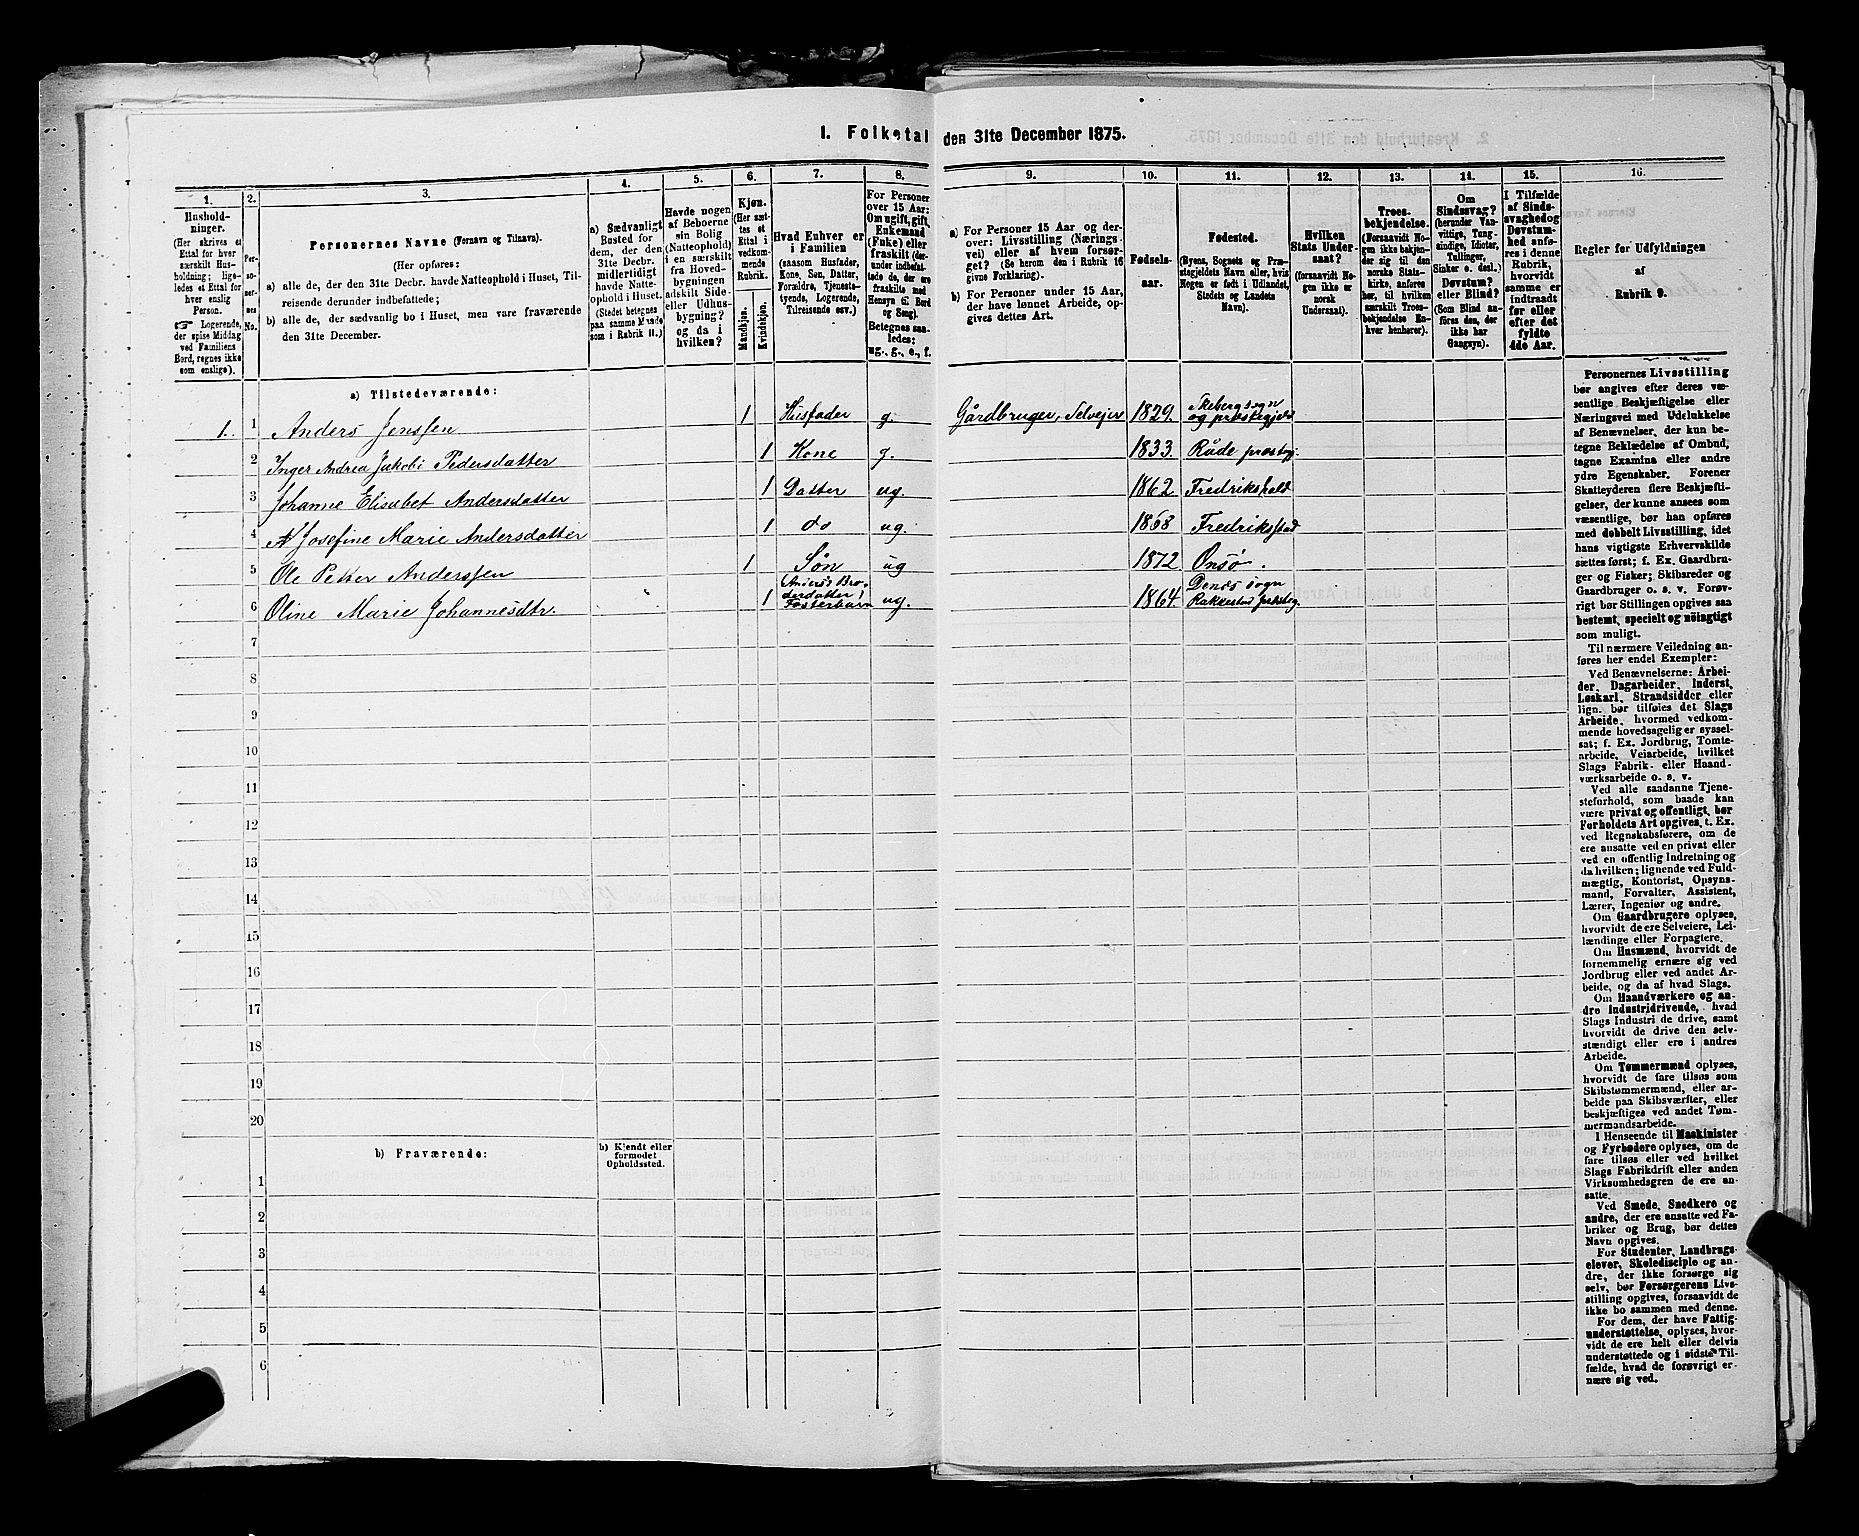 1. Folketal den 31te December 1875.
1.
Hushold-
ninger.
(Her skrives et
Ettal for hver
særskilt Hus-
holdning; lige-
ledes et Ettal for
hver enslig
Person.
☞ Logerende,
der spise Middag
ved Familiens
Bord, regnes ikke
som enslige).
2.
Per-
so-
ner-
nes
No.
3.
Personernes Navne (Fornavn og Tilnavn).
(Her opføres:
a) alle de, der den 31te Decbr. havde Natteophold i Huset, Til-
reisende derunder indbefattede;
b) alle de, der sædvanlig bo i Huset, men vare fraværende
den 31te December.
4.
a) Sædvanligt
Bosted for
dem, der den
31te Decbr.
midlertidig
havde Natte-
ophold i Huset.
(Stedet betegnes
paa samme Maade
som i Rubrik 11.)
5.
Havde nogen
af Beboerne
sin Bolig
(Natteophold)
i en særskilt
fra Hoved-
bygningen
adskilt Side-
eller Udhus-
bygning?
og da i
hvilken?
6.
Kjøn.
(Her sæt-
tes et
Ettal i
vedkom-
mende
Rubrik.
Mandkjøn.
Kvindekjøn.
7.
Hvad Enhver er
i Familien
(saasom Husfader,
Kone, Søn, Datter,
Forældre, Tjeneste-
tyende, Logerende,
Tilreisende osv.)
8.
For Personer
over 15 Aar:
Om ugift, gift,
Enkemand
(Enke) eller
fraskilt (der-
under indbefat-
tede de, der ere
fraskilte med
Hensyn til Bord
og Seng).
Betegnes saa-
ledes:
ug., g., e., f.
9.
a) For Personer 15 Aar og der-
over: Livsstilling (Nærings-
vei) eller af hvem forsør-
get? (Se herom den i Rubrik 16
givne Forklaring).
b) For Personer under 15 Aar,
der have lønnet Arbeide, op-
gives dettes Art.
10.
Fødsels-
aar.
11.
Fødested.
(Byens, Sognets og Præ-
stegjeldets Navn eller, hvis
Nogen er født i Udlandet,
Stedets og Landets
Navn).
12.
Hvilken
Stats Under-
saat?
(forsaavidt No-
gen ikke er
norsk
Undersaat).
13.
Troes-
bekjendelse.
(Forsaavidt No-
gen ikke bekjen-
der sig til den
norske Stats-
kirke, anføres
her, til hvilken
særskilt Troes-
bekjendelse En-
hver henhører).
14.
Om
Sindssvag?
(herunder Van-
vittige, Tung-
sindige, Idioter,
Tullinger,
Sinker o. desl.)
Døvstum?
eller Blind?
(Som Blind an-
føres den, der
ikke har
Gangsyn).
15.
I Tilfælde
af Sinds-
svaghed og
Døvstum-
hed anfø-
res i denne
Rubrik,
hvorvidt
samme er
indtraadt
før eller
efter det
fyldte
4de Aar.
16.
Regler for Udfyldningen
af
Rubrik 9.
a) Tilstedeværende:
1. 1 Anders Jenssen 1 Husfader g. Gårdbruger, Selvejer 1829. Skebergsogn og præstegjeld
2 Inger Andrea Jakobi Pedersdatter 1 Kone g. 1833. Råde præstegj.
3 Johanne Elisabet Andersdatter 1 Datter ug. 1862. Fredrikshald
4 Josefine Marie Andersdatter 1 do ug. 1868 Fredrikstad
5 Ole Petter Anderssen 1 Søn ug 1872 Onsø.
6 Oline Marie Johannesdtr. 1 Anders Bro-
derdatter,
Fosterbarn ug. 1864. Degnes sogn
Rakkestad præsteg.
7
8
9
10
11
12
13
14
15
16
17
18
19
20
b) Fraværende:
b) Kjendt eller
formodet
Opholdssted.
1
2
3
4
5
6
Personernes Livsstilling
bør angives efter deres væ-
sentlige Beskjæftigelse eller
Næringsvei med Udelukkelse
af Benævnelser, der kun be-
tegne Beklædelse af Ombud,
tagne Examina eller andre
ydre Egenskaber. Forener
Skatteyderen flere Beskjæfti-
gelser, der kunne ansees som
væsentlige, bør han opføres
med dobbelt Livsstilling, idet
hans vigtigste Erhvervskilde
sættes først; f. Ex. Gaardbru-
ger og Fisker; Skibsreder og
Gaardbruger o. s. v. Forøv-
rigt bør Stillingen opgives saa
bestemt, specielt og nøiagtigt
som muligt.
Til nærmere Veiledning an-
føres her endel Exempler:
Ved Benævnelserne: Arbei-
der, Dagarbeider, Inderst,
Løskarl, Strandsidder eller
lign. bør tilføies det Slags
Arbeide, hvormed vedkom-
mende hovedsagelig er syssel-
sat; f. Ex. Jordbrug, Tomte-
arbeide, Veiarbeide, hvilket
Slags Fabrik- eller Haand-
værksarbeide o. s. v.
Ved alle saadanne Tjene-
steforhold, som baade kan
være privat og offentligt, bør
Forholdets Art opgives, t. Ex.
ved Regnskabsførere, om de
ere ansatte ved en privat eller
ved en offentlig Indretning og
da hvilken; lignende ved Fuld-
mægtig, Kontorist, Opsyns-
mand, Forvalter, Assistent,
Lærer, Ingeniør og andre.
Om Gaardbrugere oplyses,
hvorvidt de ere Selveiere, Lei-
lændinge eller Forpagtere.
Om Husmænd, hvorvidt de
fornemmelig ernære sig ved
Jordbrug eller ved andet Ar-
beide, og da af hvad Slags.
Om Haandværkere og an-
dre Industridrivende, hvad
Slags Industri de drive, samt
hvorvidt de drive den selv-
stændigt eller ere i andres
Arbeide.
Om Tømmermænd oplyses,
hvorvidt de fare tilsøs som
Skibstømmermænd, eller ar-
beide paa Skibsværfter, eller
beskjæftiges ved andet Tøm-
mermandsarbeide.
I Henseende til Maskinister
og Fyrbødere oplyses, om de
fare tilsøs eller ved hvilket
Slags Fabrikdrift eller anden
Virksomhedsgren de ere an-
satte.
Ved Smede, Snedkere og
andre, der ere ansatte ved Fa-
briker og Brug, bør dettes
Navn opgives.
For Studenter, Landbrugs-
elever, Skoledisciple og an-
dre, der ikke forsørge sig
selv, bør Forsørgerens Livs-
stilling opgives, forsaavidt de
ikke bo sammen med denne.
For dem, der have Fattig-
understøttelse, oplyses, hvor-
vidt de ere helt eller delvis
understøttede og i sidste Til-
fælde, hvad de forøvrigt er-
nære sig ved.